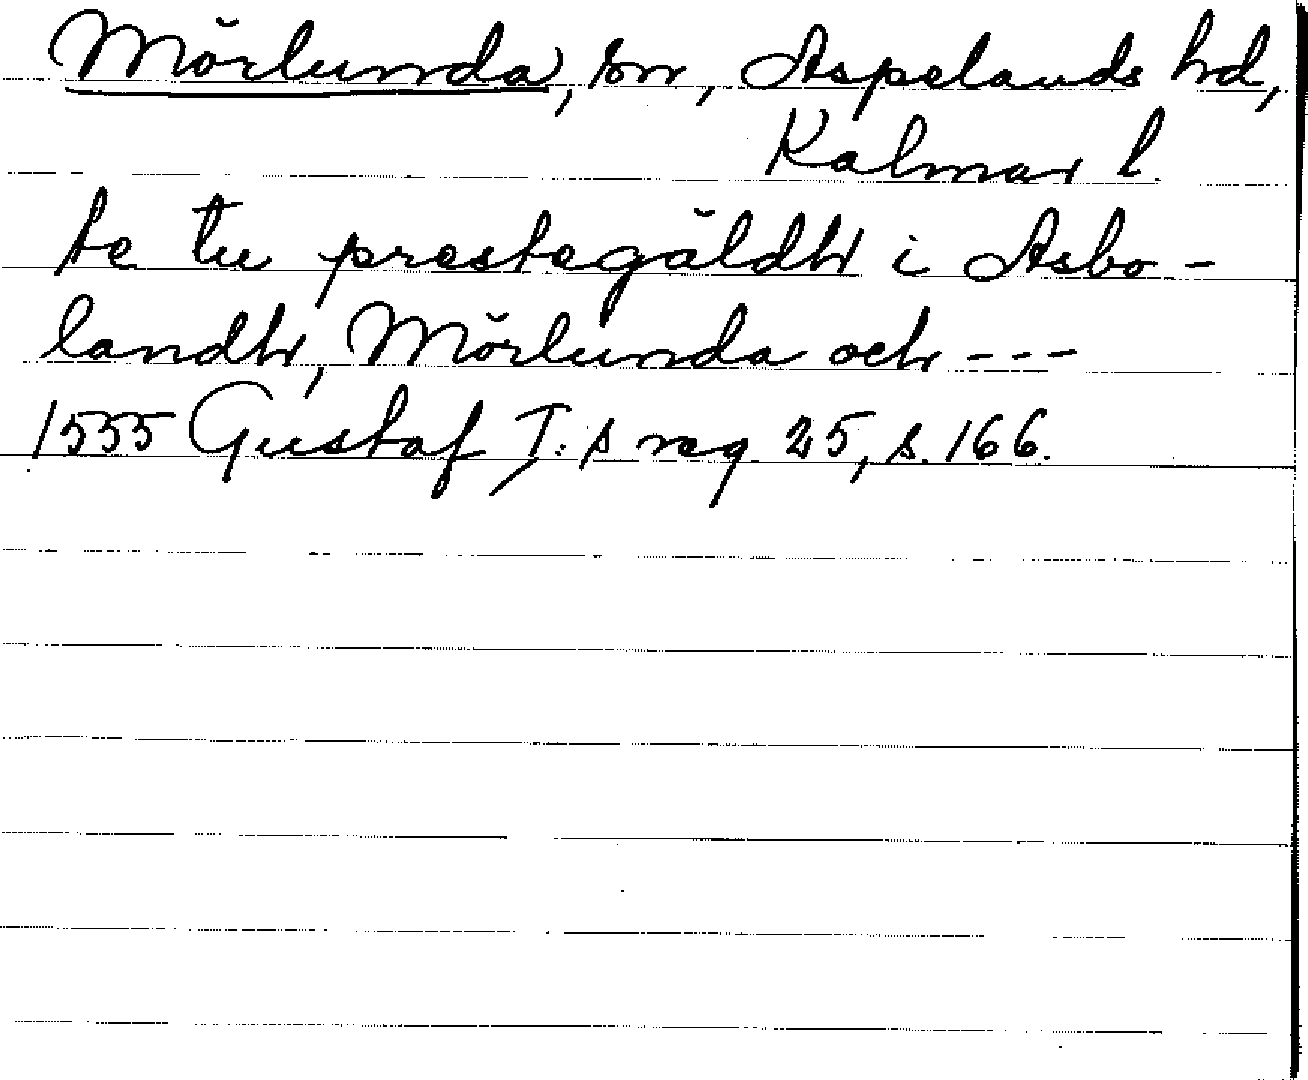 Mörlunda, sn, Aspelands hd,
Kalmar l.
te tu prestegäldh i Asbo-
landh, Mörlunda och ---
1535 Gustaf I: s reg 25, s. 166.